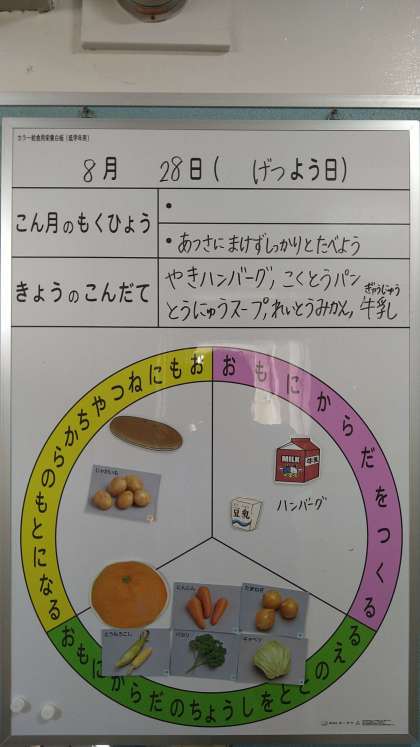 カラー給食用栄養白板(低学年用)
8月 28日( げつよう日)
こん月のもくひょう
•
• あつさにまけずしっかりとたべよう
きょうのこんだて
やきハンバーグ, こくとうパン
とうにゅうスープ, れいとうみかん, 牛乳
ぎゅうにゅう
おもにねつやちからのもとになる
おもにからだをつくる
じゃがいも
MILK 牛乳
豆乳
ハンバーグ
にんじん
たまねぎ
とうもろこし
パセリ
キャベツ
おもにからだのちょうしをととのえる